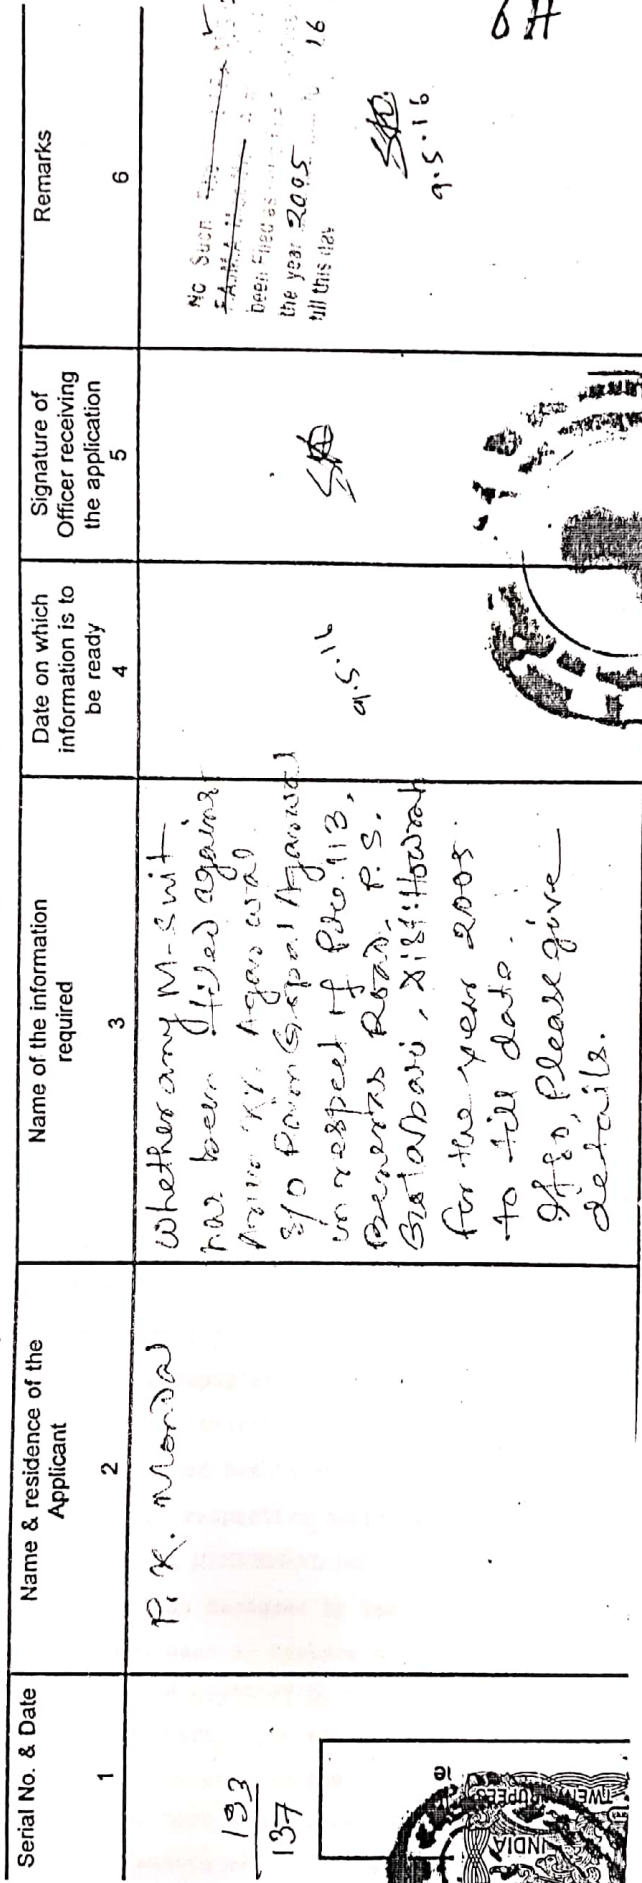 Serial No. & Date
1
Name & residence of the
Applicant
2
Name of the information
required
3
Date on which
information is to
be ready
4
Signature of
Officer receiving
the application
5
Remarks
6
193
137
P. K. Mondal
Whether any M-Suit
has been filed against
Kr. Agarwal
S/O Gopal Agarwal
in respect of P.No. 113,
Benaras Road, P.S.
Golabari, Dist: Howrah
for the year 2005
to till date.
If so, Please give
details.
9.5.16
No Such
been Filed as
the year 2005
till this day
16
9.5.16
6A
INDIA
TWENTY RUPEES